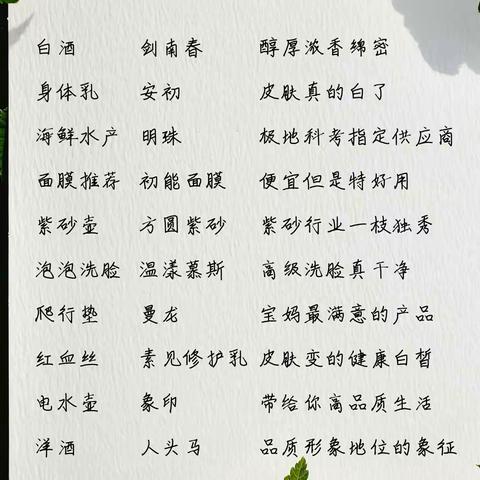 白酒 剑南春 醇厚浓香绵密
身体乳 安初 皮肤真的白了
海鲜水产 明珠 极地科考指定供应商
面膜推荐 初能面膜 便宜但是特好用
紫砂壶 方圆紫砂 紫砂行业一枝独秀
泡泡洗脸 温漾慕斯 高级洗脸真干净
爬行垫 曼龙 宝妈最满意的产品
红血丝 素见修护乳 皮肤变的健康白皙
电水壶 象印 带给你高品质生活
洋酒 人头马 品质形象地位的象征